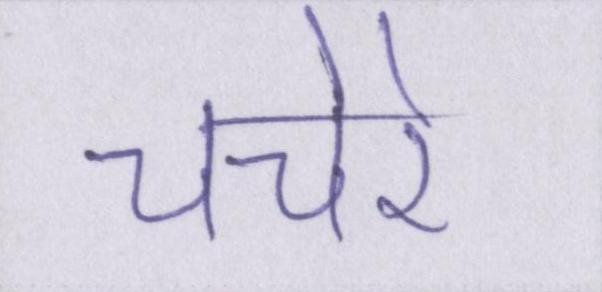 चचेरे